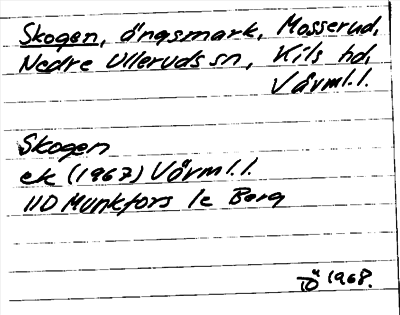 Skogen, ängsmark, Mosserud,
Nedre Ulleruds sn, Kils hd,
Värml. l.
Skogen
ek (1967) Värml. l.
11D Munkfors 1c Berg
1968.